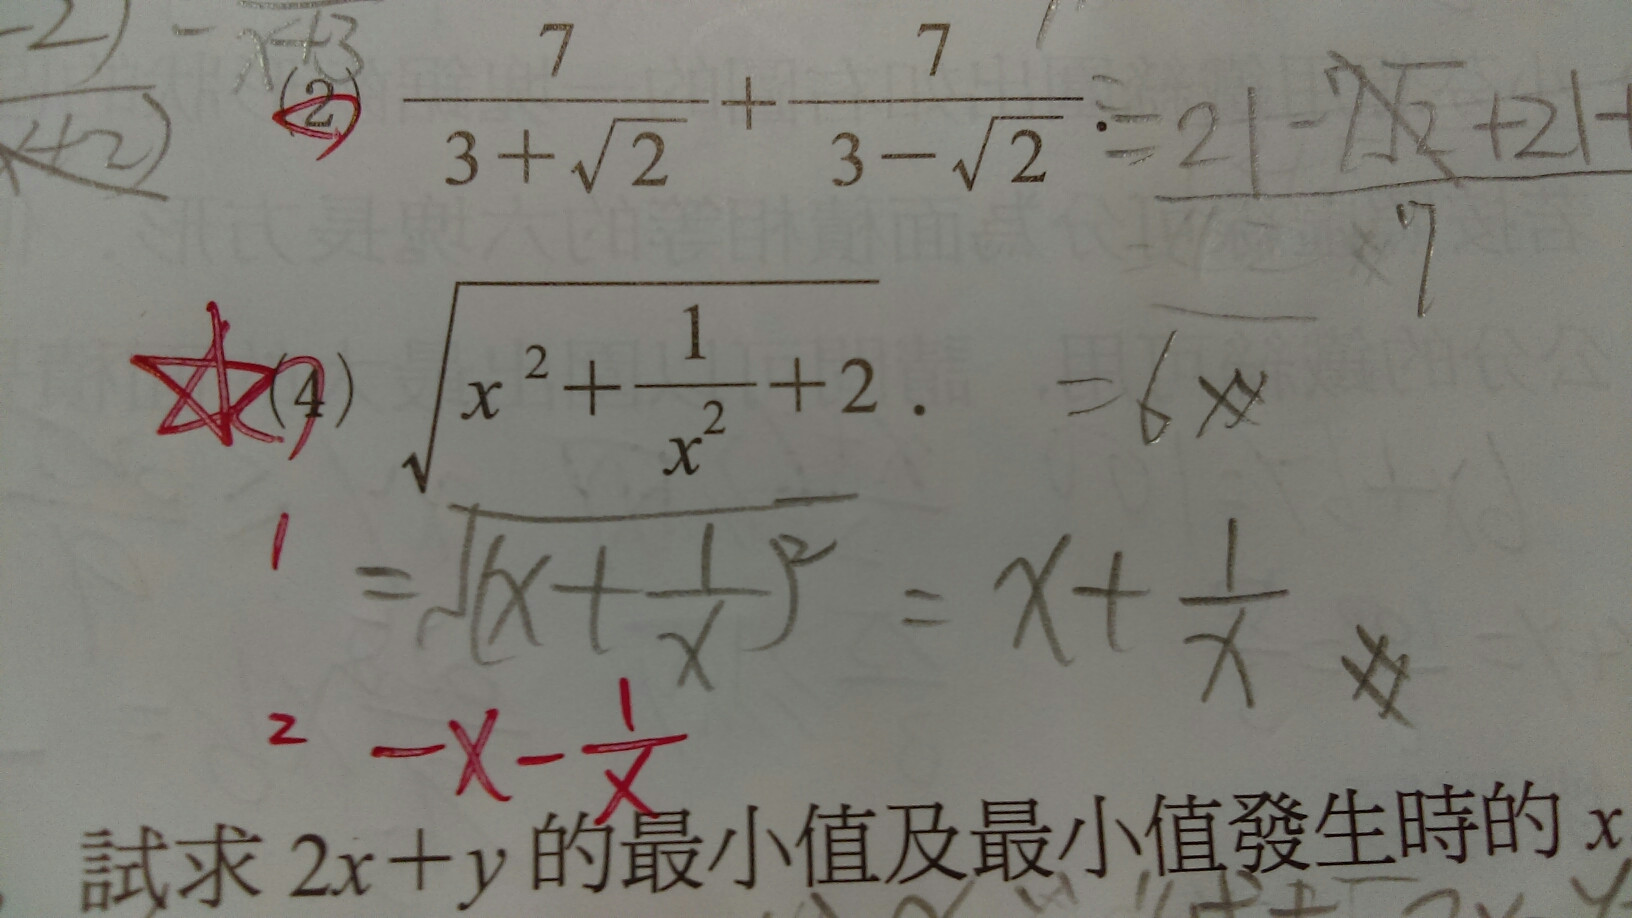 -2) - x+3
x+2)
(2) 7/(3+√2) + 7/(3-√2) . = (21-7√2+21+)/7
(4) √(x²+1/x²+2) . = 6
1 = √((x+1/x)²) = x+1/x
2 -x-1/x
試求 2x+y 的最小值及最小值發生時的 x